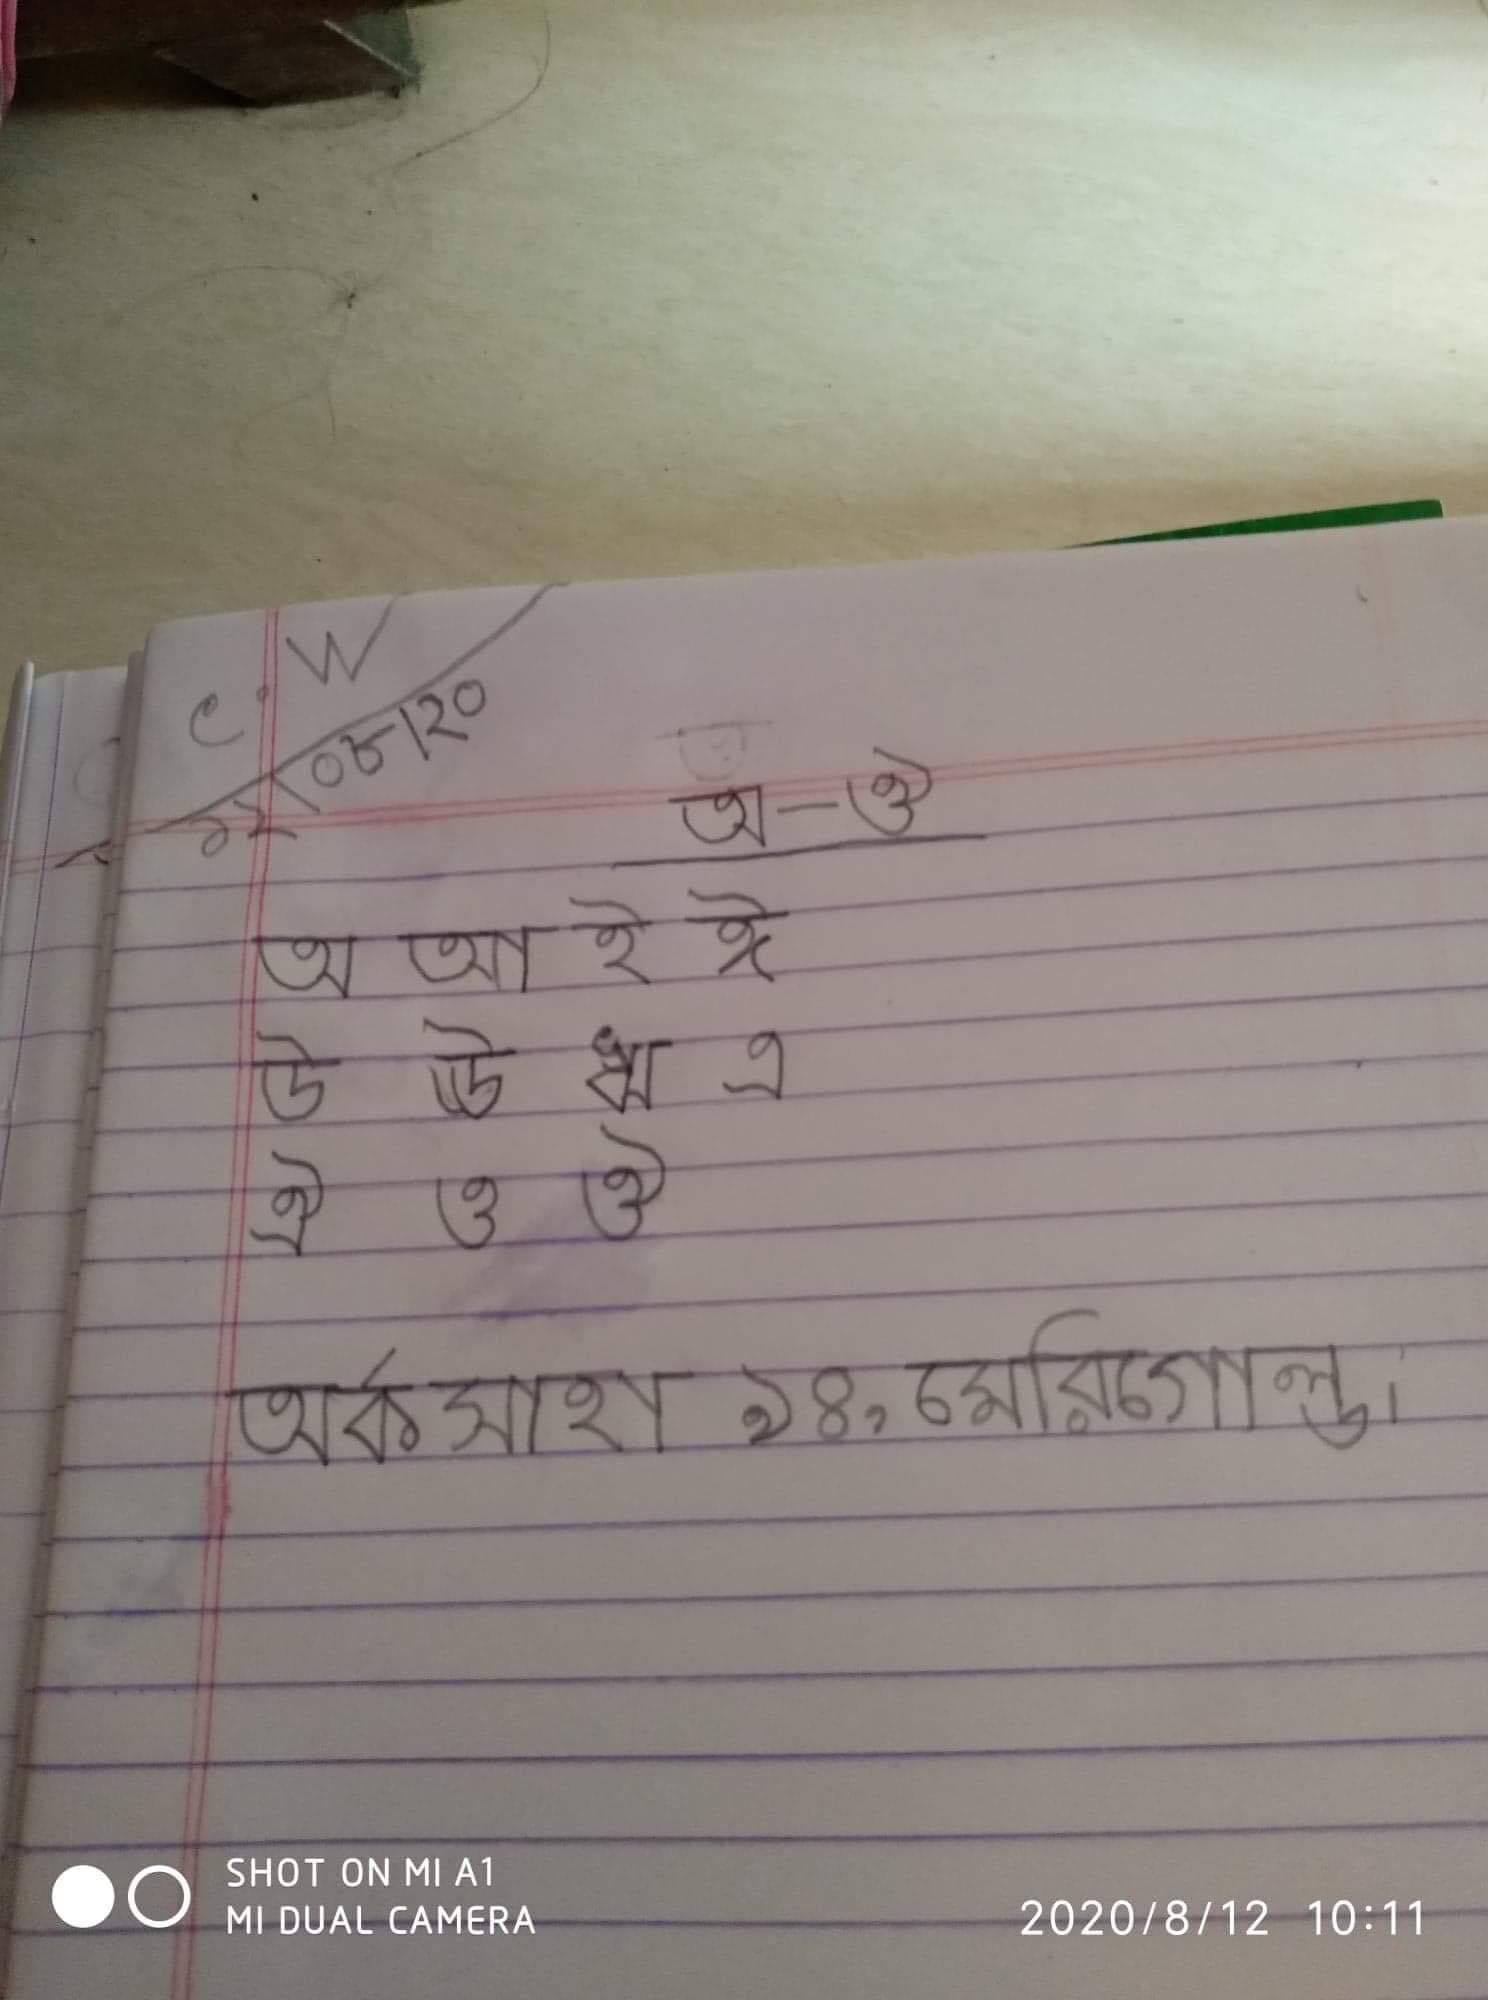 C.W
১২/০৮/২০
অ-ঔ
অ আ ই ঈ
উ ঊ ঋ এ
ঐ ও ঔ
অর্ক সাহা ১৪, মেরিগোল্ড।
SHOT ON MI A1
MI DUAL CAMERA
2020/8/12 10:11